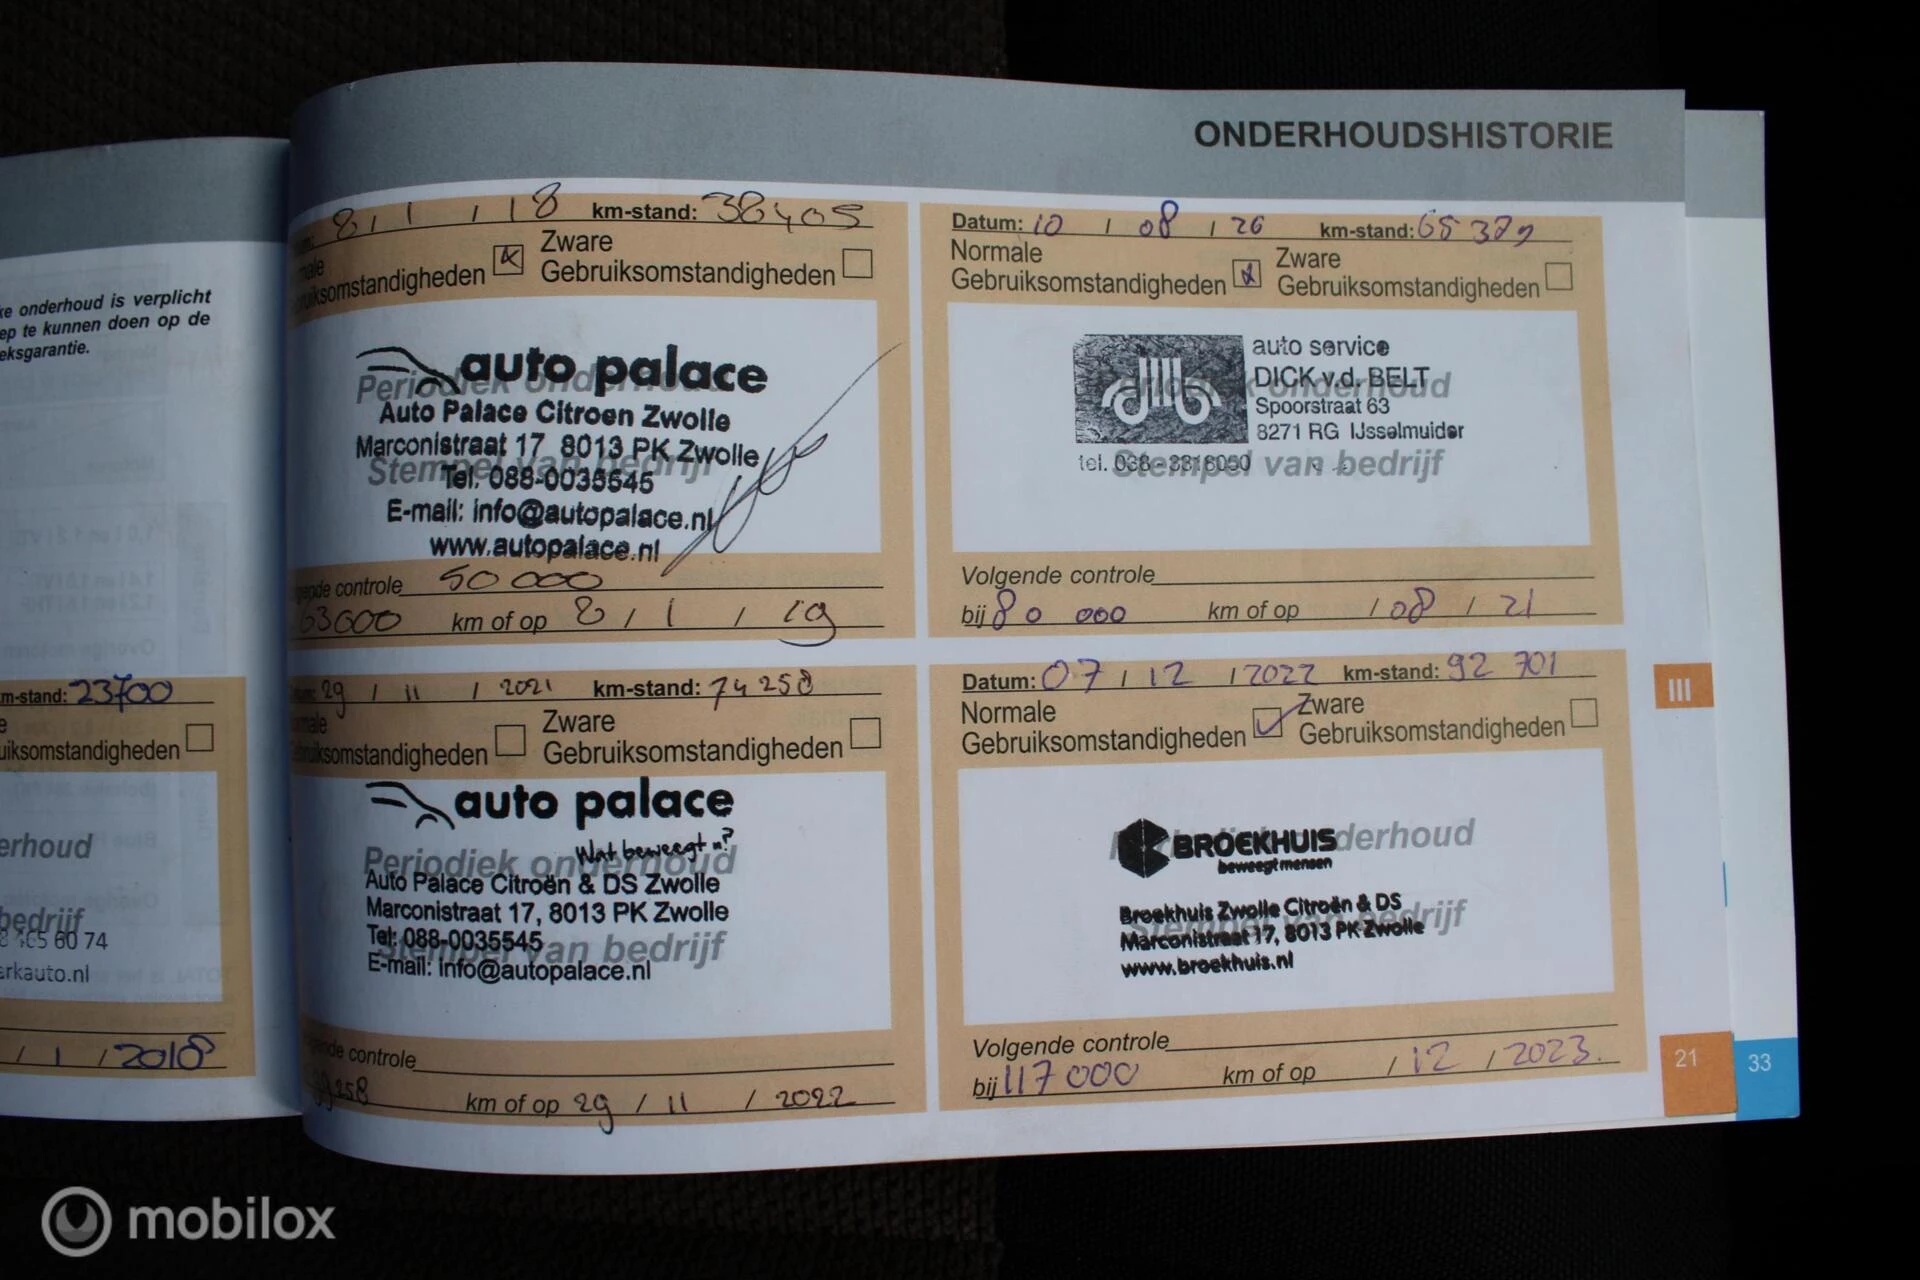 ONDERHOUDSHISTORIE
ke onderhoud is verplicht
ep te kunnen doen op de
eksgarantie.
km-stand: 23700
uiksomstandigheden
erhoud
bedrijf
65 60 74
erkauto.nl
/ 1 / 2018
8 / 1 / 18 km-stand: 38405
Zware
Gebruiksomstandigheden
auto palace
Periodiek onderhoud
Auto Palace Citroen Zwolle
Marconistraat 17 8013 PK Zwolle
Stempel van bedrijf
Tel: 088-0035545
E-mail: info@autopalace.nl
www.autopalace.nl
controle 50 000
63600 km of op 8 / 1 / 19
Datum: 10 / 08 / 20 km-stand:
Normale
Gebruiksomstandigheden
Zware
Gebruiksomstandigheden
auto service
DICK v.d. BELT
Periodiek onderhoud
Spoorstraat 63
8271 RG IJsselmuiden
tel. 038-3318050
Stempel van bedrijf
Volgende controle
bij 80 000 km of op / 08 / 21
29 / 11 / 2021 km-stand: 74258
Zware
Gebruiksomstandigheden
auto palace
Wat beweegt u?
Periodiek onderhoud
Auto Palace Citroën & DS Zwolle
Marconistraat 17, 8013 PK Zwolle
Tel: 088-0035545
Stempel van bedrijf
E-mail: info@autopalace.nl
controle
99258 km of op 29 / 11 / 2022
Datum: 07 / 12 / 2022 km-stand: 92 701
Normale
Gebruiksomstandigheden
Zware
Gebruiksomstandigheden
BROEKHUIS
beweegt mensen
Periodiek onderhoud
Broekhuis Zwolle Citroën & DS
Marconistraat 17, 8013 PK Zwolle
Stempel van bedrijf
www.broekhuis.nl
Volgende controle
bij 117 000 km of op / 12 / 2023.
III
21
33
mobilox